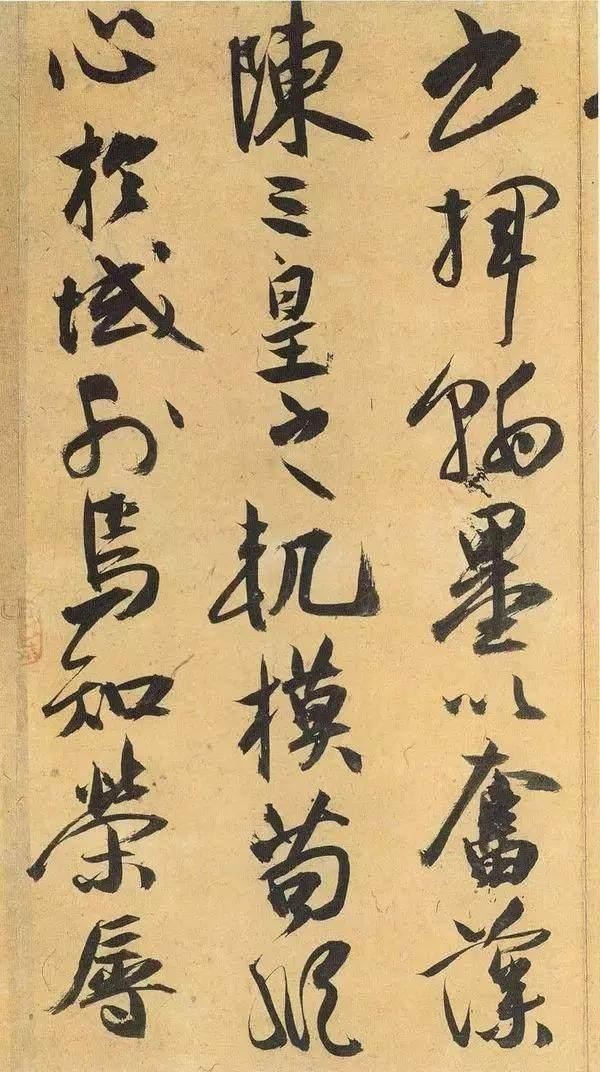 書揮翰墨以奮藻
陳三皇之軌模苟縱
心於域外焉知榮辱